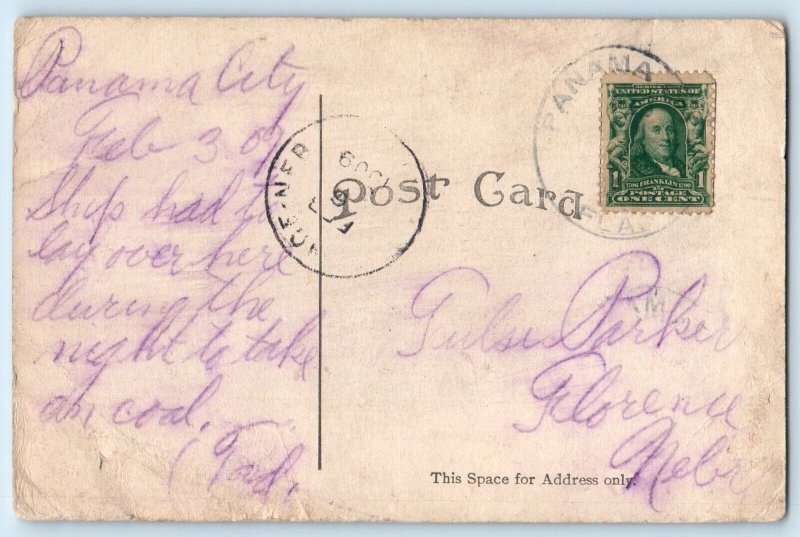 Panama City
Feb 3 09
Ship had to
lay over here
during the
night to take
on coal.
Post Card
PANAMA
FLA.
NCE-NEB
1909
SERIES 1902
UNITED STATES OF
AMERICA
1 FRANKLIN 1
POSTAGE
ONE CENT
Parker
Florence
Nebr
This Space for Address only.